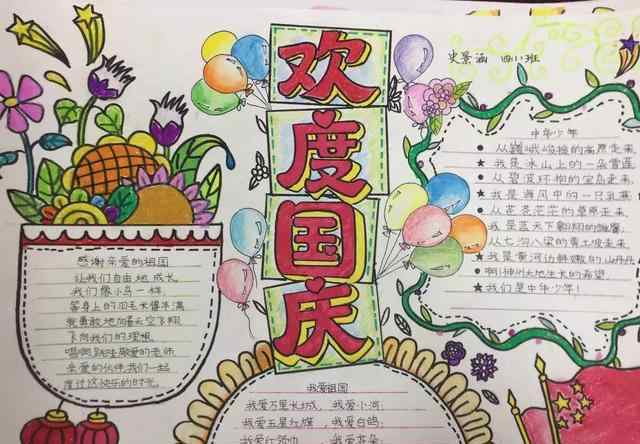 欢度国庆
史景涵 四11班
感谢亲爱的祖国
让我们自由地成长
我们像小鸟一样
等身上的羽毛长得丰满
我勇敢地向着天空飞翔
飞向我们的理想
唱啊跳啊敬爱的老师
亲爱的伙伴我们一起
度过这快乐的时光
中华少年
从巍峨峻拔的高原走来
我是冰山上的一朵雪莲
从碧波环抱的宝岛走来
我是海风中的一只乳燕
从苍苍茫茫的草原走来
我是蓝天下翱翔的雏鹰
从七沟八梁的黄土坡走来
我是黄河边鲜嫩的山丹丹
啊!神州大地生长的希望
我们是中华少年!
我爱祖国
我爱万里长城, 我爱小河;
我爱五星红旗, 我爱白鸽;
我爱红领巾